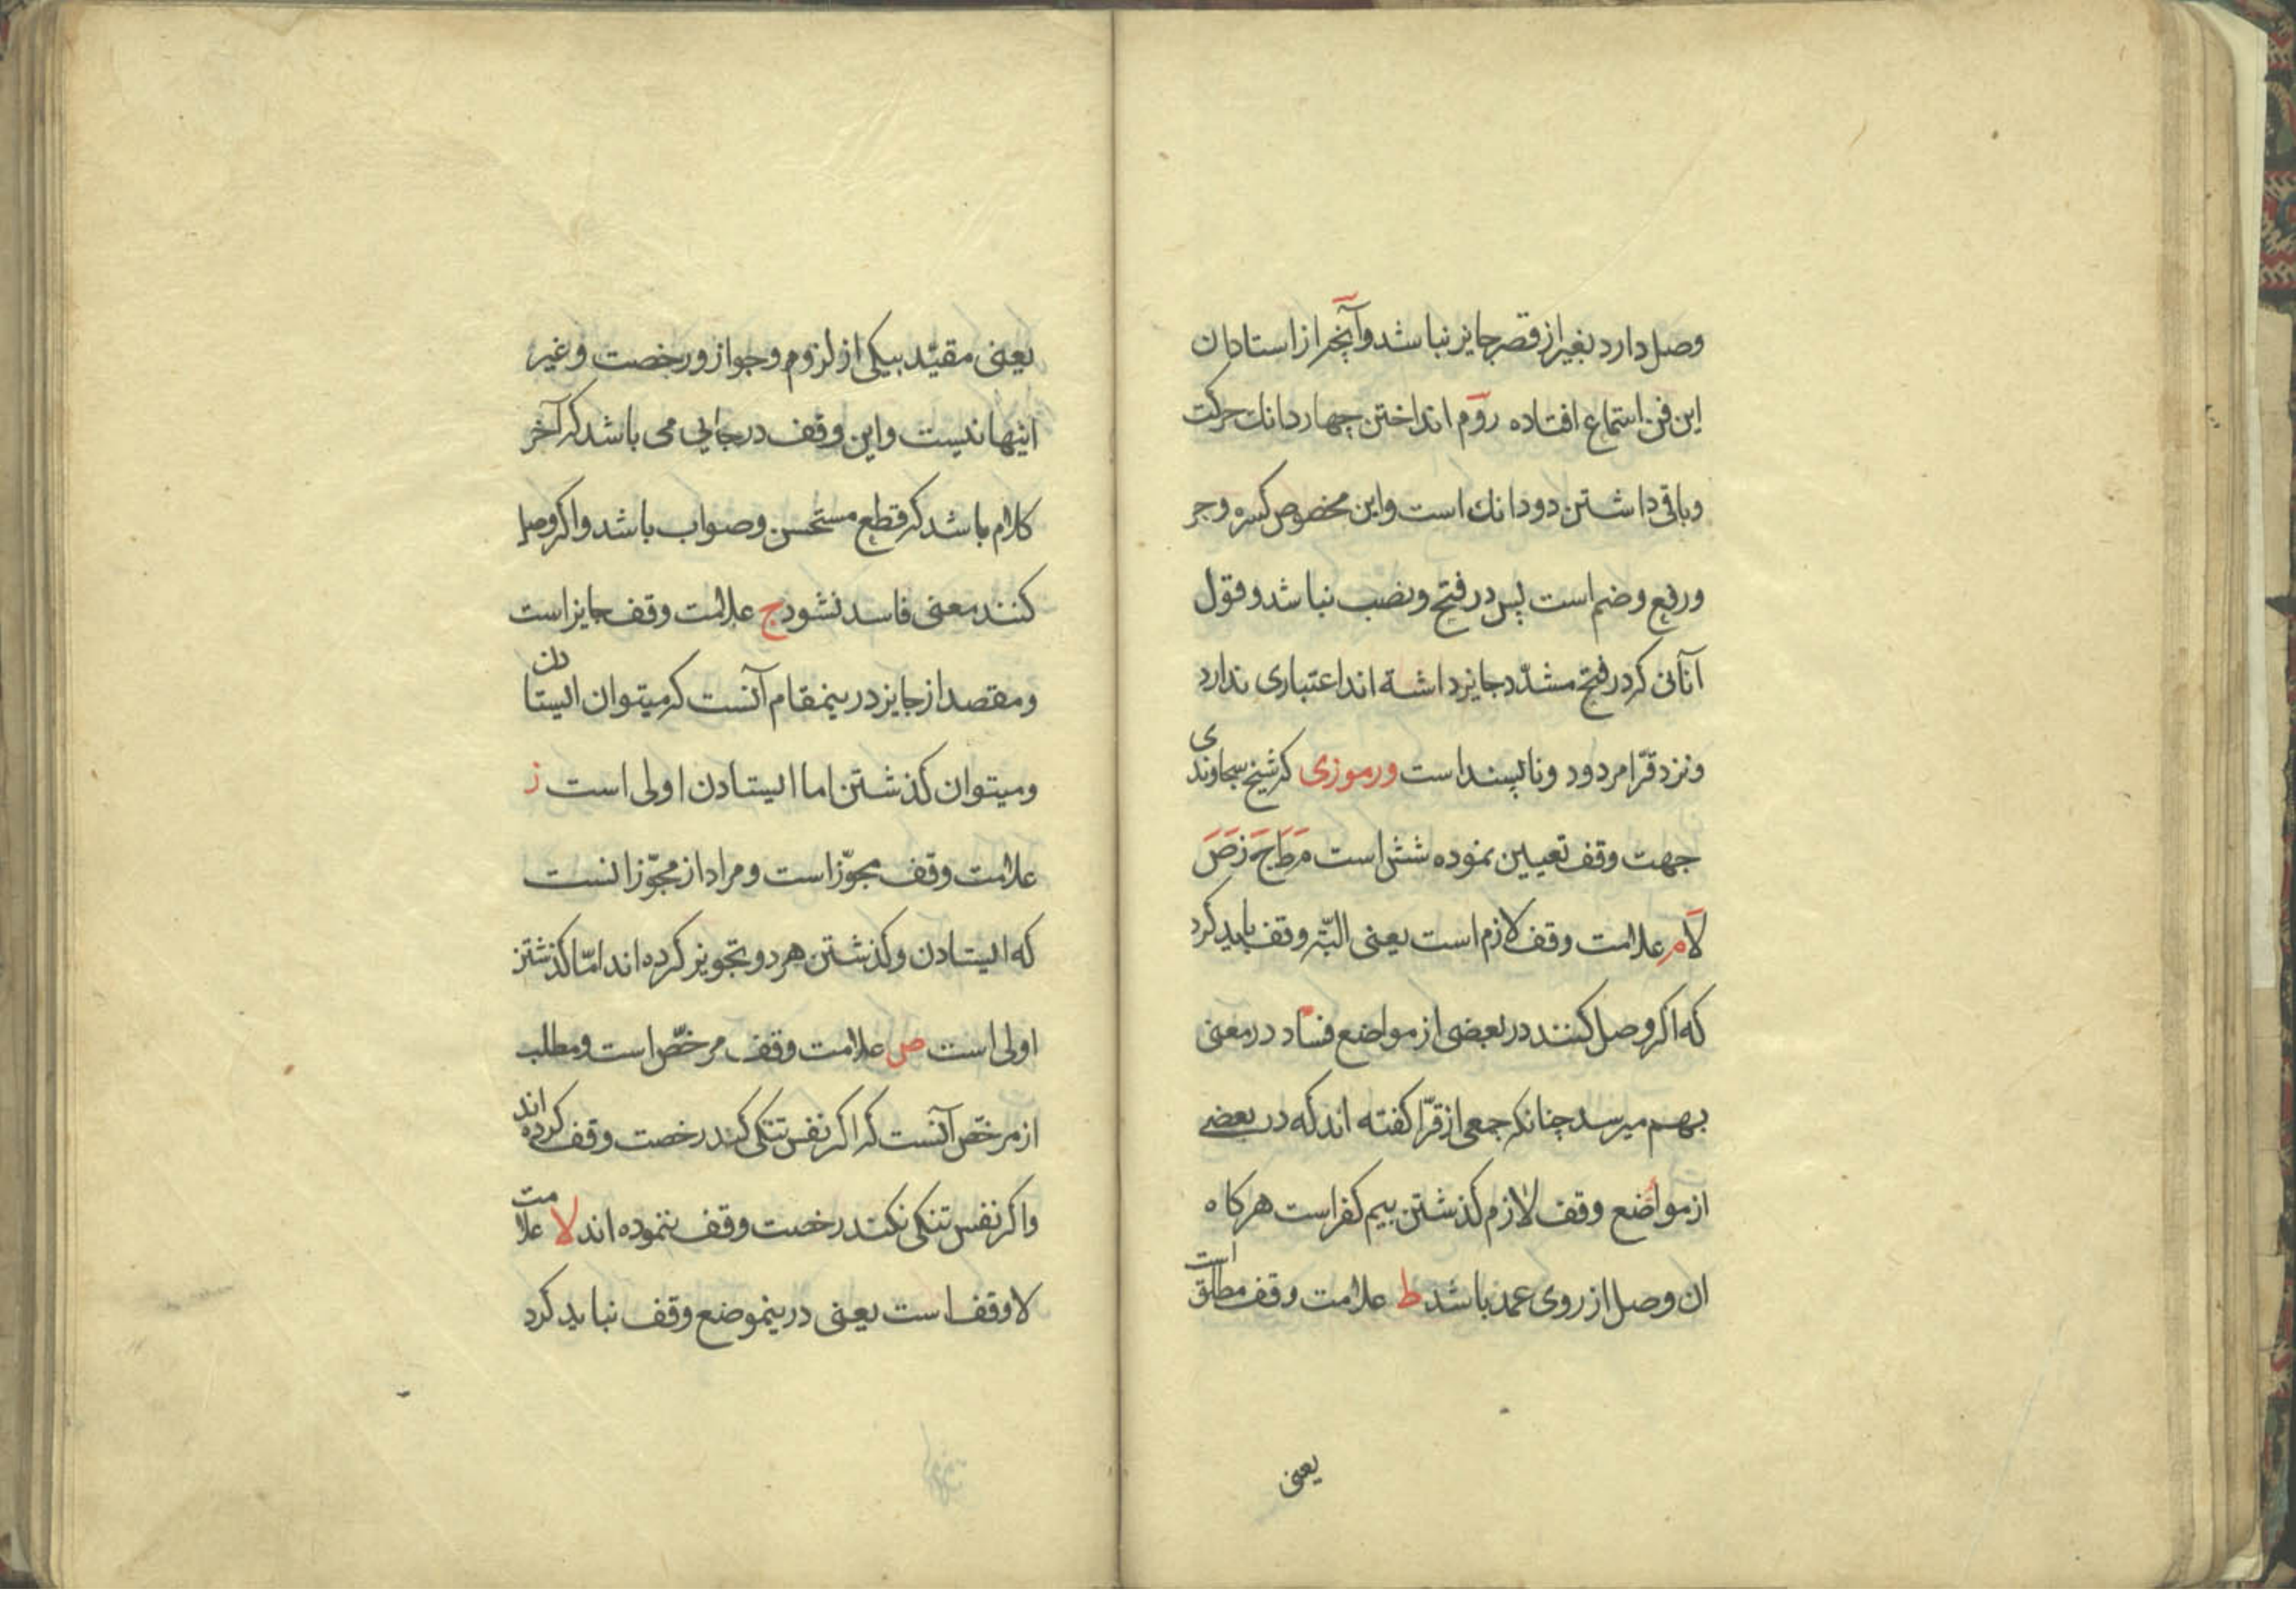 وصل دارد بغیر از قصر جایز نباشد وآنچه از استادان
این فن استماع افتاده روم انداختن چهار دانك حرکت
وباقی داشتن دو دانك است واین مخصوص کسره وجر
ورفع وضم است پس در فتح ونصب نباشد وقول
آنانی که در فتح مشدّد جایز داشته اند اعتباری ندارد
ونزد قرّا مردود وناپسند است ورموزی که شیخ سجاوندی
جهت وقف تعیین نموده شش است م ط ج ز ص
لا م علامت وقف لازم است یعنی البتّه وقف باید کرد
که اکر وصل کنند در بعضی از مواضع فساد در معنی
بهم میرسد چنانکه جمعی از قرّا کفته اند که در بعضی
از مواضع وقف لازم کذشتن بیم کفر است هرکاه
ان وصل از روی عمد باشد ط علامت وقف مطلق است
یعنی
یعنی مقیّد بیکی از لزوم وجواز ورخصت وغیر
اینها نیست واین وقف در جایی می باشد که آخر
کلام باشد که قطع مستحسن وصواب باشد واکر وصل
کنند معنی فاسد نشود ج علامت وقف جایز است
ومقصد از جایز درینمقام آنست که میتوان ایستادن
ومیتوان کذشتن اما ایستادن اولی است ز
علامت وقف مجوّز است ومراد از مجوّز انست
که ایستادن وکذشتن هر دو تجویز کرده اند امّا کذشتن
اولی است ص علامت وقف مرخّص است ومطلب
از مرخّص آنست که اکر نفس تنکی کند رخصت وقف کرده اند
واکر نفس تنکی نکند رخصت وقف ننموده اند لا علامت
لا وقف است یعنی درینموضع وقف نباید کرد